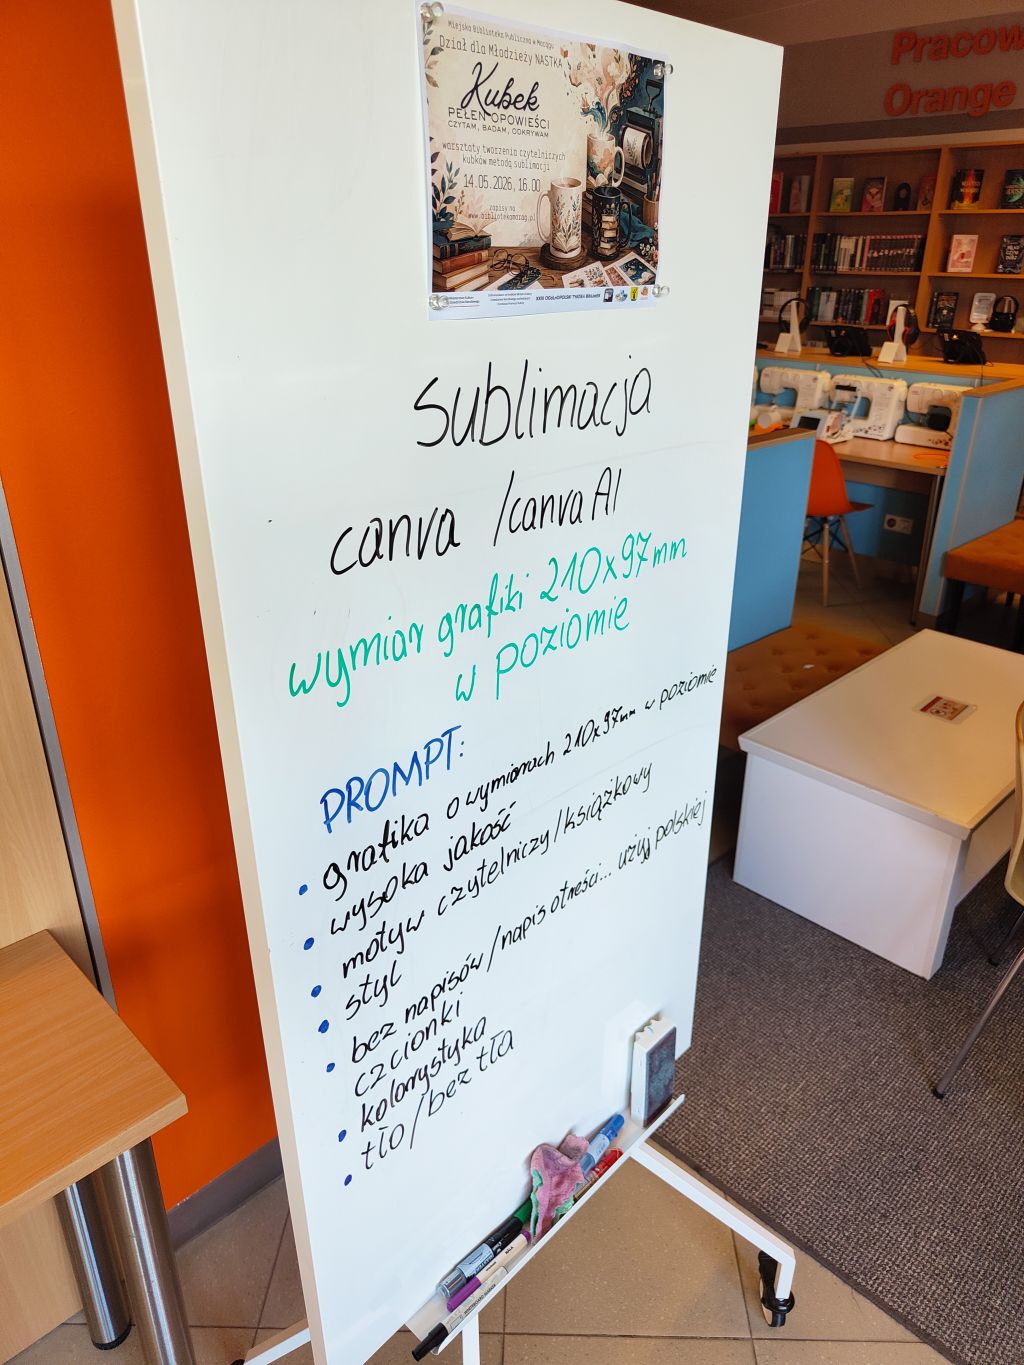 Miejska Biblioteka Publiczna w Morągu
Dział dla Młodzieży NASTKA
Kubek
PEŁEN OPOWIEŚCI
CZYTAM, BADAM, ODKRYWAM
warsztaty tworzenia czytelniczych
kubków metodą sublimacji
14.05.2026, 16.00
zapisy na
www.bibliotekamorag.pl
XXIII OGÓLNOPOLSKI TYDZIEŃ BIBLIOTEK
Pracow
Orange
sublimacja
canva /canva AI
wymiar grafiki 210x97mm
w poziomie
PROMPT:
• grafika o wymiarach 210x97mm w poziomie
• wysoka jakość
• motyw czytelniczy/książkowy
• styl
• bez napisów/napis o treści... użyj polskiej
czcionki
• kolorystyka
• tło/bez tła